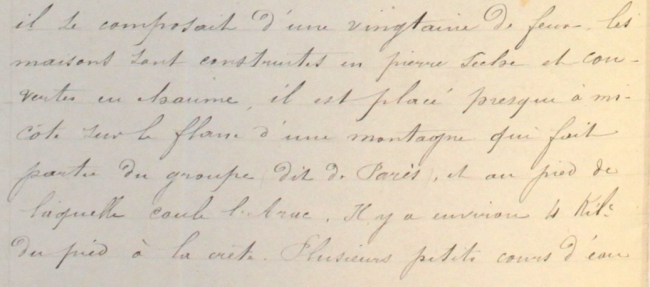 il se composait d'une vingtaine de feux. les
maisons sont construites en pierre seche et cou-
vertes en chaume, il est placé presque à mi-
côte sur le flanc d'une montagne qui fait
partie du groupe dit de Parés, et au pied de
laquelle coule l'. Il y a environ 4 Kil.
du pied à la crète. Plusieurs petits cours d'eau